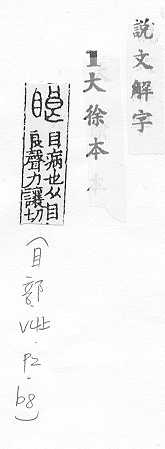 說文解字
1大徐本
目病也从目
良聲力讓切
(目部.v4上.p2.b8)